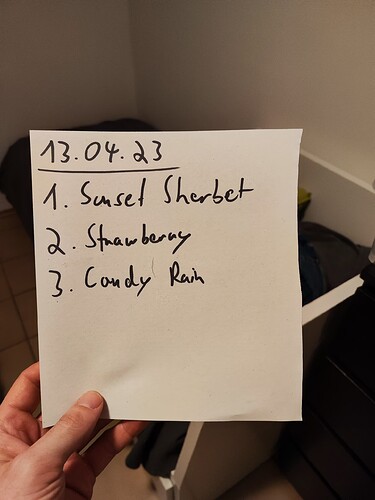 13.04.23
1. Sunset Sherbet
2. Strawberry
3. Candy Rain